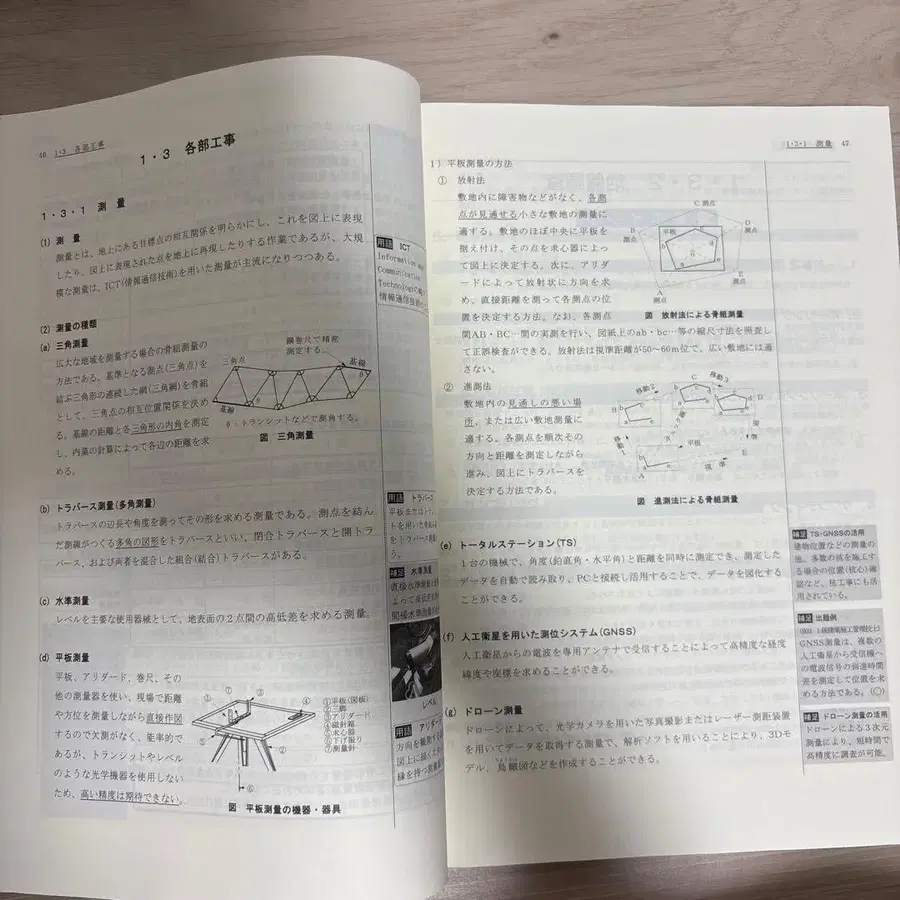 46 1・3 各部工事
1・3 各部工事
1・3・1 測 量
(1) 測 量
測量とは、地上にある目標点の相互関係を明らかにし、これを図上に表現
したり、図上に表現された点を地上に再現したりする作業であるが、大規
模な測量は、ICT(情報通信技術)を用いた測量が主流になりつつある。
用語 ICT
Information and
Communication
Technologyの略
情報通信技術の
(2) 測量の種類
(a) 三角測量
広大な地域を測量する場合の骨組測量の
方法である。基準となる測点(三角点)を
結ぶ三角形の連続した網(三角網)を骨組
として、三角点の相互位置関係を決め
る。基線の距離と各三角形の内角を測定
し、内業の計算によって各辺の距離を求
める。
鋼巻尺で精密
測定する。
三角点
基線
θ
基線
θ
θ：トランシットなどで測角する。
図 三角測量
(b) トラバース測量(多角測量)
トラバースの辺長や角度を測ってその形を求める測量である。測点を結ん
だ測線がつくる多角の図形をトラバースといい、閉合トラバースと開トラ
バース、および両者を混合した組合(結合)トラバースがある。
用語 トラバース
(c) 水準測量
レベルを主要な使用器械として、地表面の2点間の高低差を求める測量。
補足 水準測量
直接水準測量
よって高低差
レベル
(d) 平板測量
平板、アリダード、巻尺、その
他の測量器を使い、現場で距離
や方位を測量しながら直接作図
するので欠測がなく、能率的で
あるが、トランシットやレベル
のような光学機器を使用しない
ため、高い精度は期待できない。
①平板(図板)
②三脚
③アリダード
④磁針箱
⑤求心器
⑥下げ振り
⑦測量針
図 平板測量の機器・器具
用語 アリダー
方向を観測する
図上に描く
縁を持つ
1・3・1 測量 47
1) 平板測量の方法
① 放射法
敷地内に障害物などがなく、各測
点が見通せる小さな敷地の測量に
適する。敷地のほぼ中央に平板を
据え付け、その点を求心器によっ
て図上に決定する。次に、アリダ
ードによって放射状に方向を求
め、直接距離を測って各測点の位
置を決定する方法。なお、各測点
間AB・BC…間の実測を行い、図紙上のab・bc…等の縮尺寸法を照査し
て正誤検査ができる。放射法は視準距離が50~60m位で、広い敷地には適
さない。
C 測点
B
測点
平板
D
測点
E
測点
A
測点
図 放射法による骨組測量
② 進測法
敷地内の見通しの悪い場
所、または広い敷地測量に
適する。各測点を順次その
方向と距離を測定しながら
進み、図上にトラバースを
決定する方法である。
移動2
C
移動3
B
D
移動1
チェック
平板
視準
A
E
図 進測法による骨組測量
(e) トータルステーション(TS)
1台の機械で、角度(鉛直角・水平角)と距離を同時に測定でき、測定した
データを自動で読み取り、PCと接続し活用することで、データを図化する
ことができる。
補足 TS・GNSSの活用
建物位置などの測量の
他、多数の杭を施工す
る場合の位置(杭心)確
認など、杭工事にも活
用されている。
(f) 人工衛星を用いた測位システム(GNSS)
人工衛星からの電波を専用アンテナで受信することによって高精度な経度
緯度や座標を求めることができる。
補足 出題例
GNSS測量は、複数の
人工衛星から受信機へ
の電波信号の到達時間
差を測定して位置を求
める方法である。(○)
(g) ドローン測量
ドローンによって、光学カメラを用いた写真撮影またはレーザー測距装置
を用いてデータを取得する測量で、解析ソフトを用いることにより、3Dモ
デル、鳥瞰図などを作成することができる。
補足 ドローン測量の活用
ドローンによる3次元
測量により、短時間で
高精度に調査が可能。